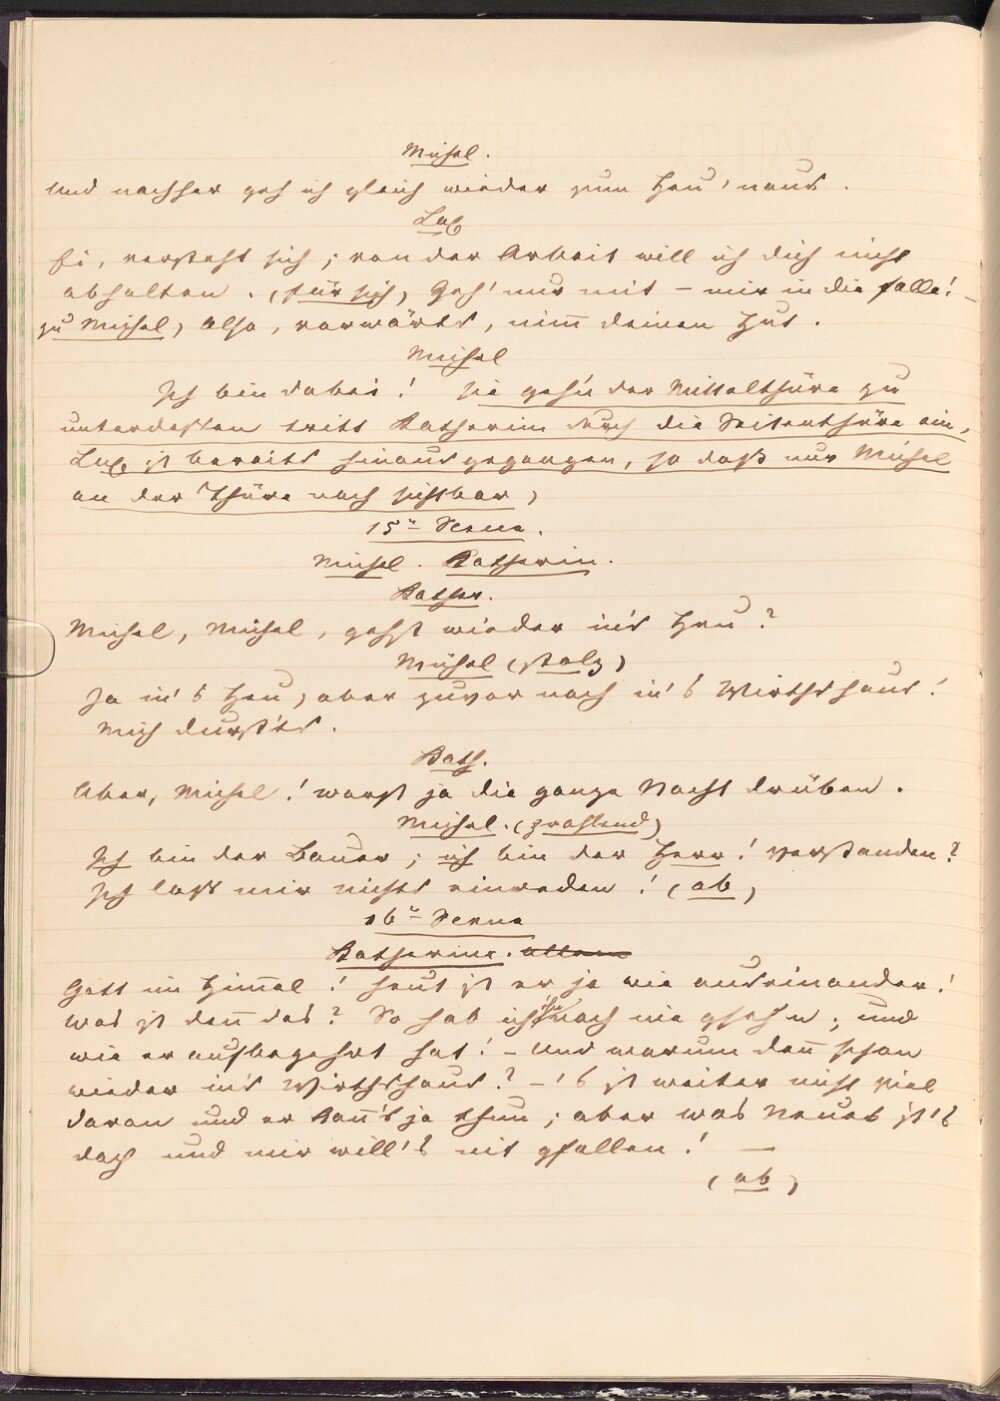 Michel.
Und nachher geh ich gleich wieder zum Heu 'naus.
Lux
Ei, versteht sich; von der Arbeit will ich dich nicht
abhalten. (für sich) Geh' nur mit – mir in die Falle! –
zu Michel) Also, vorwärts, nim̄ deinen Hut.
Michel
Ich bin dabei! sie geh'n der Mittelthüre zu
unterdessen tritt Katherin durch die Seitenthüre ein,
Lux ist bereits hinausgegangen, so daß nur Michel
an der Thüre noch sichtbar)
15te Scene.
Michel. Katherin.
Kather.
Michel, Michel, gehst wieder in's Heu?
Michel (stolz)
Ja in's Heu, aber zuvor noch in's Wirthshaus!
Mich durst'ts.
Kath.
Aber, Michel! warst ja die ganze Nacht drüben.
Michel. (prahlend)
Ich bin der Bauer; ich bin der Herr! verstanden?
Ich lass mir nichts einreden! (ab)
16te Scene
Katherine. allein
Gott im Him̄el! heut ist er ja wie auseinander!
Was ist den̄ das? So hab ich ihn noch nie gsehn; und
wie er aufbegehrt hat! – Und warum den̄ schon
wieder in's Wirthshaus? – 's ist weiter nicht viel
daran und er kan̄'s ja thun; aber was Neues ist's
doch und mir will's nit gfallen! —
(ab)